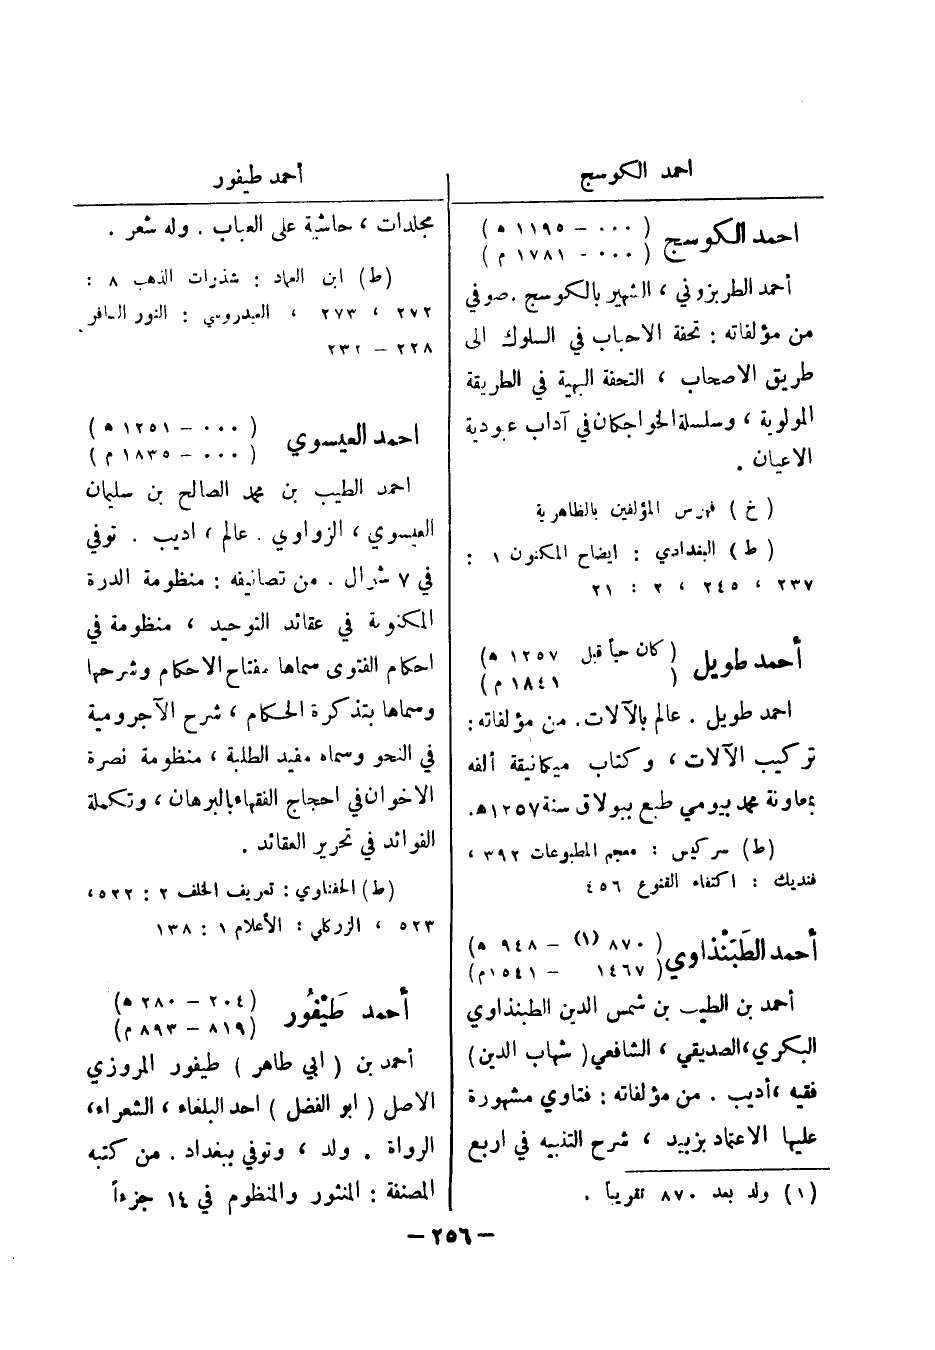 احمد الكوسج
احمد الكوسج
( ٠٠٠ – ١١٩٥ ه )
( ٠٠٠ - ١٧٨١ م )
أحمد الطربزوني ، الشهير بالكوسج . صوفي
من مؤلفاته : تحفة الاحباب في السلوك الى
طريق الاصحاب ، التحفة البهية في الطريقة
المولوية ، وسلسلة الخواجكان في آداب عبودية
الاعيان .
( خ ) فهرس المؤلفين بالظاهرية
( ط ) البغدادي : ايضاح المكنون ١ :
٢٣٧ ، ٢٤٥ ، ٢ : ٢١
أحمد طويل
( كان حياً قبل ١٢٥٧ ه )
( ١٨٤١ م )
احمد طويل . عالم بالآلات . من مؤلفاته :
تركيب الآلات ، وكتاب ميكانيقة ألفه
بمعاونة محمد بيومي طبع ببولاق سنة ١٢٥٧ه .
(ط) سركيس : معجم المطبوعات ٣٩٢ ،
فنديك : اكتفاء القنوع ٤٥٦
أحمد الطَبَنْذاوي
( ٨٧٠ (١) – ٩٤٨ ه )
( ١٤٦٧ – ١٥٤١م )
أحمد بن الطيب بن شمس الدين الطبنذاوي
البكري ،الصديقي ، الشافعي ( شهاب الدين )
فقيه ،أديب . من مؤلفاته : فتاوي مشهورة
عليها الاعتماد بزبيد ، شرح التنبيه في اربع
(١) ولد بعد ٨٧٠ تقويباً .
أحمد طيفور
مجلدات ، حاشية على العباب . وله شعر .
(ط) ابن العماد : شذرات الذهب ٨ :
٢٧٢ ، ٢٧٣ ، العيدروسي : النور السافر
٢٢٨ – ٢٣٢
احمد العيسوي
( ٠٠٠ – ١٢٥١ ه )
( ٠٠٠ – ١٨٣٥ م )
احمد الطيب بن محمد الصالح بن سليمان
العيسوي ، الزواوي . عالم ، اديب . توفي
في ٧ شوال . من تصانيفه : منظومة الدرة
المكنونة في عقائد التوحيد ، منظومة في
احكام الفتوى سماها مفتاح الاحكام وشرحها
وسماها بتذكرة الحكام ، شرح الآجرومية
في النحو وسماه مفيد الطلبة ، منظومة نصرة
الاخوان في احجاج الفقهاء بالبرهان ، وتكملة
الفوائد في تحرير العقائد .
(ط) الحفناوي : تعريف الخلف ٢ : ٥٢٢ ،
٥٢٣ ، الزركلي : الأعلام ١ : ١٣٨
أحمد طَيْفُور
( ٢٠٤ – ٢٨٠ ه )
( ٨١٩ – ٨٩٣ م )
أحمد بن ( ابي طاهر ) طيفور المروزي
الاصل ( ابو الفضل ) احد البلغاء ، الشعراء ،
الرواة . ولد ، وتوفي ببغداد . من كتبه
المصنفة : المنثور والمنظوم في ١٤ جزءاً
– ٢٥٦ –